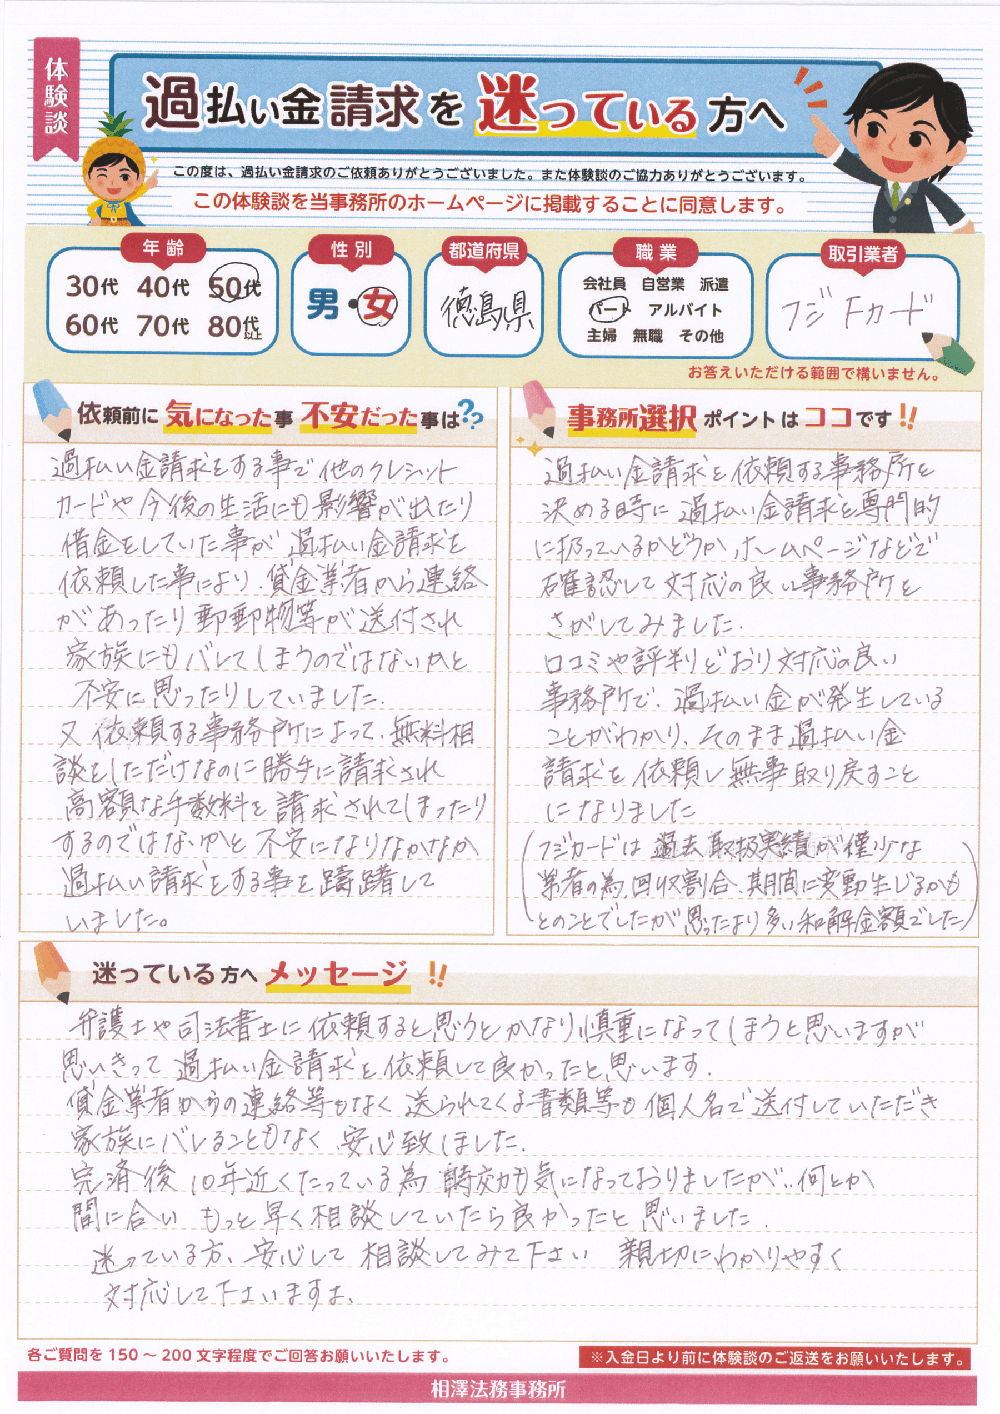 体験談
過払い金請求を迷っている方へ
この度は、過払い金請求のご依頼ありがとうございました。また体験談のご協力ありがとうございます。
この体験談を当事務所のホームページに掲載することに同意します。
年齢
30代 40代 50代
60代 70代 80代以上
性別
男・女
都道府県
徳島県
職業
会社員 自営業 派遣
パート アルバイト
主婦 無職 その他
取引業者
フジFカード
お答えいただける範囲で構いません。
依頼前に気になった事不安だった事は??
過払い金請求をする事で他のクレジット
カードや今後の生活にも影響が出たり
借金をしていた事が過払い金請求を
依頼した事により、貸金業者から連絡
があったり郵郵物等が送付され
家族にもバレてしまうのではないかと
不安に思ったりしていました。
又依頼する事務所によって、無料相
談をしただけなのに勝手に請求され
高額な手数料を請求されてしまったり
するのではないかと不安になりなかなか
過払い請求をする事を躊躇して
いました。
事務所選択ポイントはココです!!
過払い金請求を依頼する事務所を
決める時に過払い金請求を専門的
に扱っているかどうか、ホームページなどで
確認して対応の良い事務所を
さがしてみました。
口コミや評判どおり対応の良い
事務所で、過払い金が発生している
ことがわかり、そのまま過払い金
請求を依頼し無事取り戻すこと
になりました
(フジカードは過去取扱実績が僅少な
業者の為、回収割合、期間に変動生じるかも
とのことでしたが思ったより多い和解金額でした)
迷っている方へメッセージ!!
弁護士や司法書士に依頼すると思うとかなり慎重になってしまうと思いますが
思いきって過払い金請求を依頼して良かったと思います。
貸金業者からの連絡等もなく送られてくる書類等も個人名で送付していただき
家族にバレることもなく安心致しました。
完済後10年近くたっている為時効も気になっておりましたが、何とか
間に合いもっと早く相談していたら良かったと思いました。
迷っている方、安心して相談してみて下さい 親切にわかりやすく
対応して下さいますよ。
各ご質問を150～200文字程度でご回答お願いいたします。
※入金日より前に体験談のご返送をお願いいたします。
相澤法務事務所